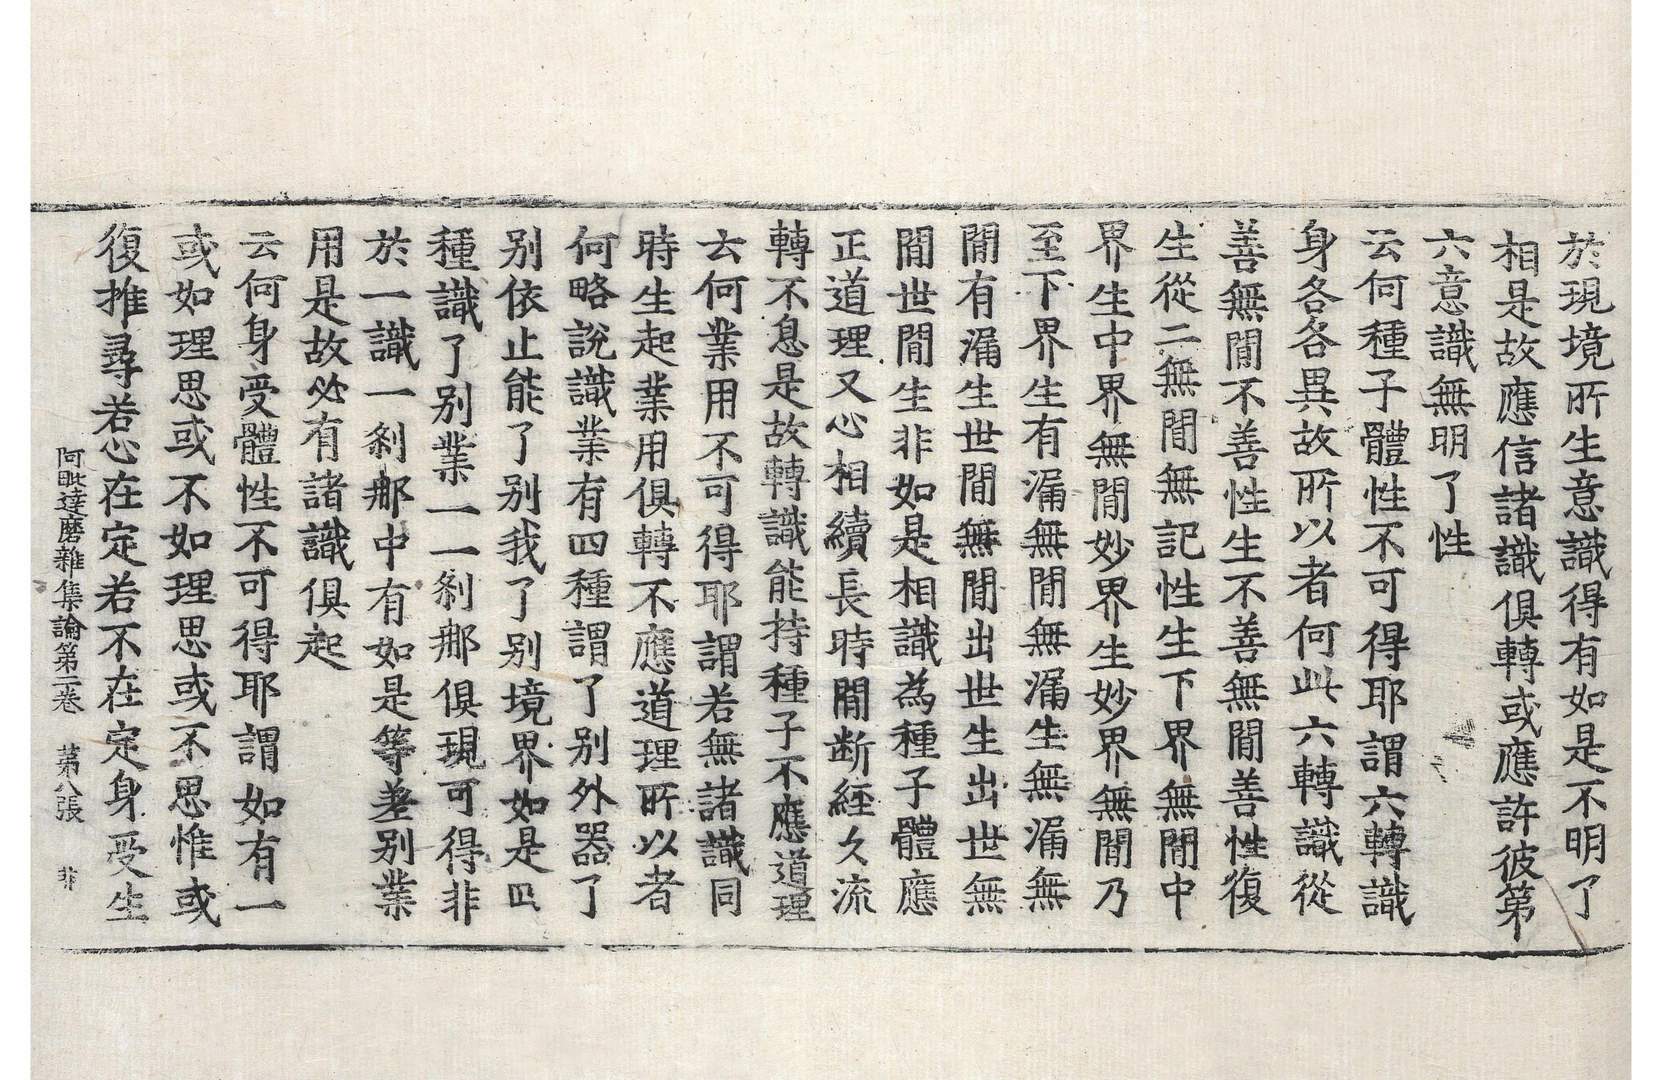 於現境所生意識得有如是不明了
相是故應信諸識俱轉或應許彼第
六意識無明了性
云何種子體性不可得耶謂六轉識
身各各異故所以者何此六轉識從
善無閒不善性生不善無閒善性復
生從二無閒無記性生下界無閒中
界生中界無閒妙界生妙界無閒乃
至下界生有漏無閒無漏生無漏無
閒有漏生世閒無閒出世生出世無
閒世閒生非如是相識為種子體應
正道理又心相續長時閒断經久流
轉不息是故轉識能持種子不應道理
云何業用不可得耶謂若無諸識同
時生起業用俱轉不應道理所以者
何略說識業有四種謂了別外器了
別依止能了別我了別境界如是四
種識了別業一一剎那俱現可得非
於一識一剎那中有如是等差別業
用是故必有諸識俱起
云何身受體性不可得耶謂如有一
或如理思或不如理思或不思惟或
復推尋若心在定若不在定身受生
阿毗達磨雜集論第二卷 第八張 非